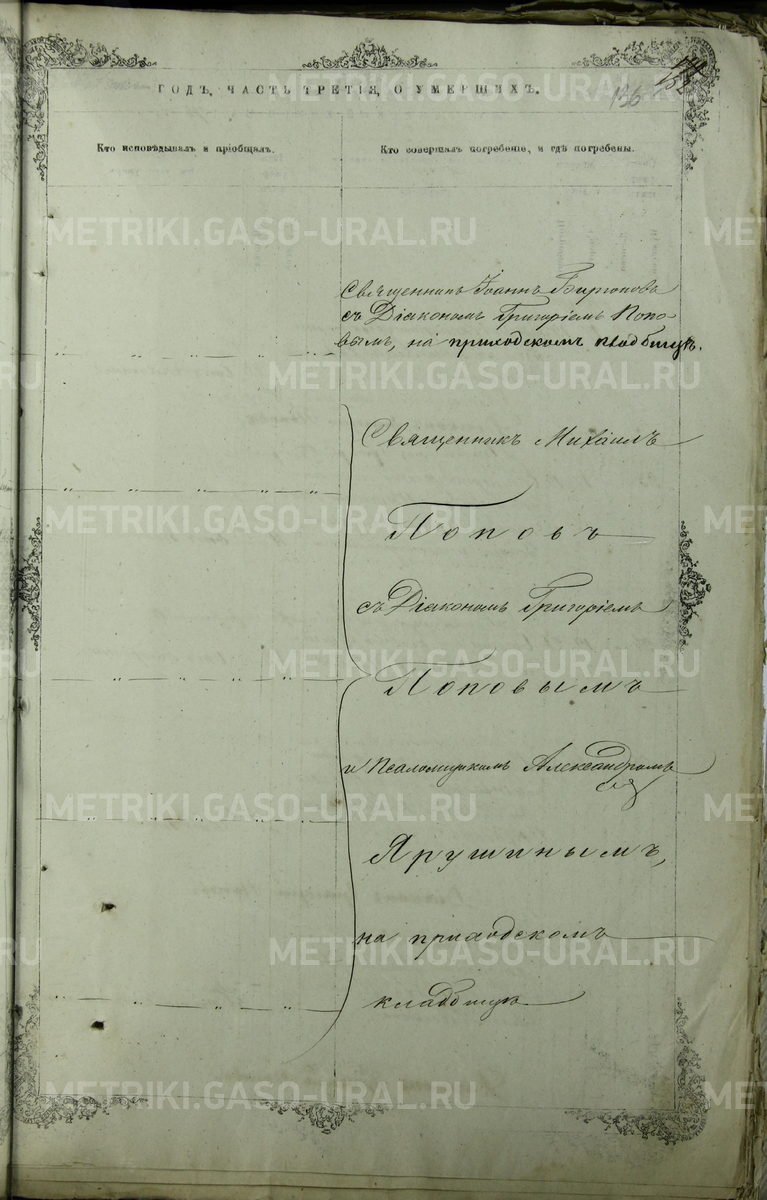 ГОДЪ, ЧАСТЬ ТРЕТІЯ, О УМЕРШИХЪ.
136
Кто исповѣдывалъ и пріобщалъ.
Кто совершалъ погребеніе, и гдѣ погребены.
Священникъ Іоаннъ
съ Діакономъ Григоріемъ Попо-
вымъ, на приходскомъ кладбищѣ.
Священникъ Михаилъ
Поповъ
съ Діакономъ Григоріемъ
Поповымъ
и Псаломщикомъ Александромъ
Ярушинымъ,
на приходскомъ
кладбищѣ
METRIKI.GASO-URAL.RU